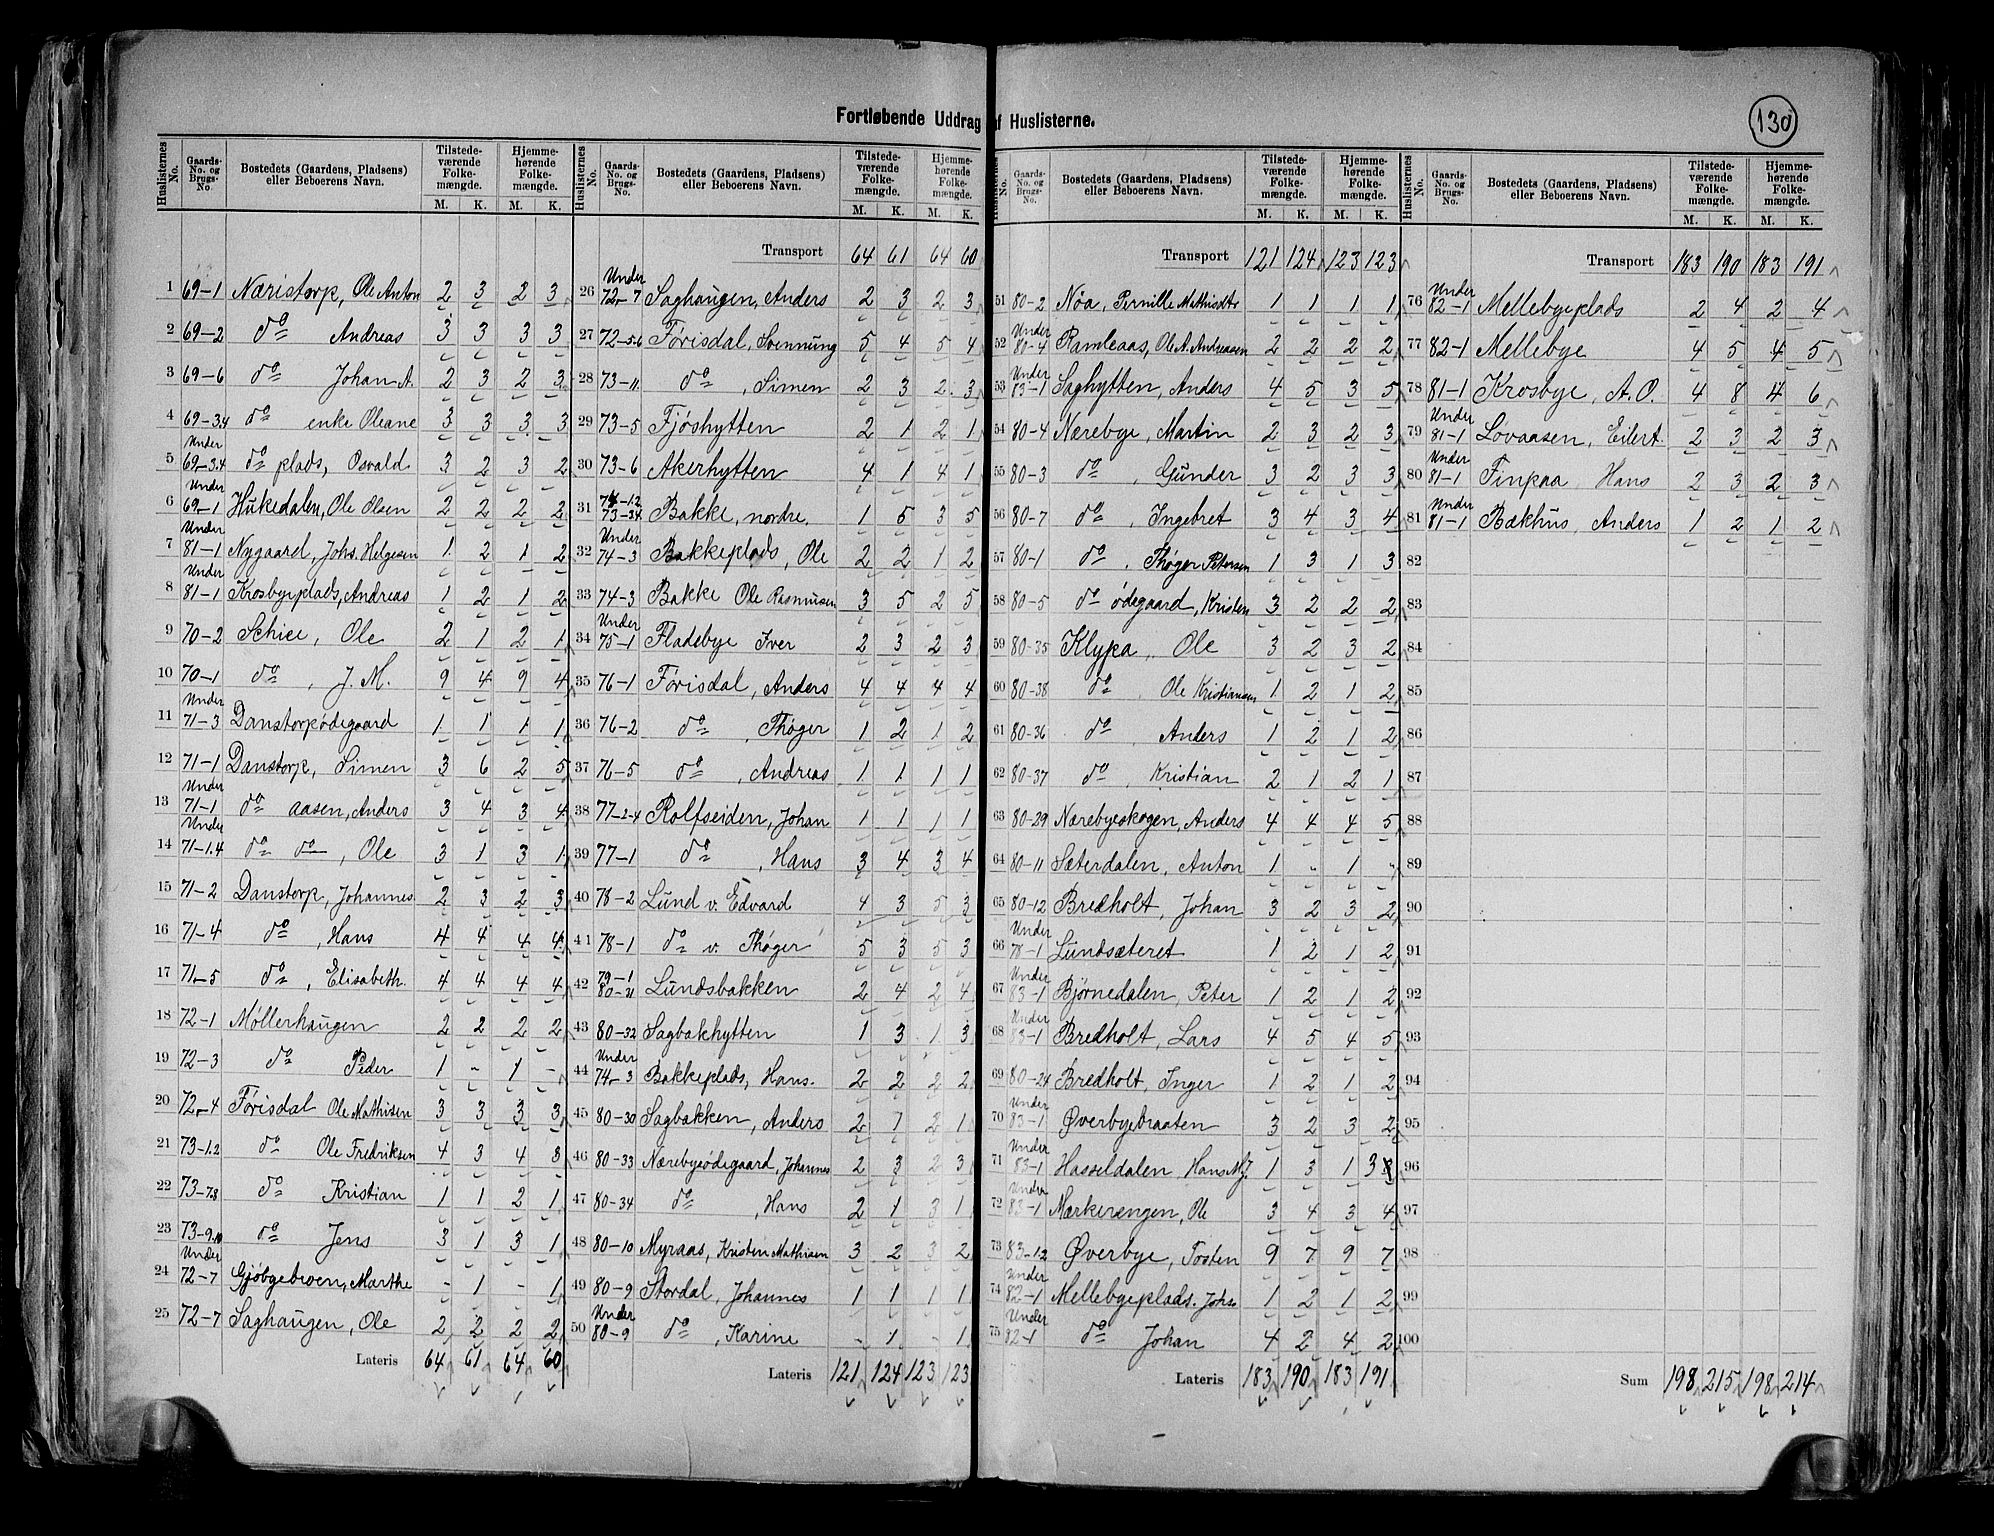 Fortløbende Uddrag af Huslisterne.
130
Huslisternes No. | Gaards-No. og Brugs-No. | Bostedets (Gaardens, Pladsens) eller Beboerens Navn. | Tilstedeværende Folkemængde. M. K. | Hjemmehørende Folkemængde. M. K.
1 69-1 Næristorp, Ole Anton 2 3 2 3
2 69-2 do Andreas 3 3 3 3
3 69-6 do Johan A. 2 3 2 3
4 69-3.4 do enke Oleane 3 3 3 3
5 Under 69-3.4 do plads, Osvald 3 2 3 2
6 Under 69-1 Hukedalen, Ole Olsen 2 2 2 2
7 Under 81-1 Nygaard, Johs. Helgesen 1 2 1 2
8 Under 81-1 Krosbyeplads, Andreas 1 2 1 2
9 70-2 Schiee, Ole 2 1 2 1
10 70-1 do, J. M. 9 4 9 4
11 Under 71-3 Danstorpødegaard 1 1 1 1
12 71-1 Danstorp, Simen 3 6 2 5
13 Under 71-1 do aasen, Anders 3 4 3 4
14 Under 71-1.4 do do, Ole 3 1 3 1
15 71-2 Danstorp, Johannes 2 3 2 3
16 71-4 do, Hans 4 4 4 4
17 71-5 do, Elisabeth. 4 4 4 4
18 72-1 Møllerhaugen 2 2 2 2
19 72-3 do Peder 1 - 1 -
20 72-4 Førisdal Ole Mathisen 3 3 3 3
21 73-1.2 do Ole Fredriksen 4 3 4 3
22 73-7.8 do Kristian 1 1 2 1
23 73-9.10 do Jens 3 1 3 1
24 Under 72-7 Gjøbgebroen, Marthe - 1 - 1
25 72-7 Saghaugen, Ole 2 2 2 2
Lateris 64 61 64 60
Huslisternes No. | Gaards-No. og Brugs-No. | Bostedets (Gaardens, Pladsens) eller Beboerens Navn. | Tilstedeværende Folkemængde. M. K. | Hjemmehørende Folkemængde. M. K.
Transport 64 61 64 60
26 Under 72-7 Saghaugen, Anders 2 3 2 3
27 72-5.6 Førisdal, Svennung 5 4 5 4
28 73-11 do, Simen 2 3 2 3
29 73-5 Fjøshytten 2 1 2 1
30 73-6 Akerhytten 4 1 4 1
31 74-1.2 73-3.4 Bakke, nordre. 1 5 3 5
32 Under 74-3 Bakkeplads, Ole 2 2 1 2
33 74-3 Bakke Ole Rasmusen 3 5 2 5
34 Under 75-1 Fladebye Iver 2 3 2 3
35 76-1 Førisdal, Anders 4 4 4 4
36 76-2 do, Thøger 1 2 1 2
37 76-5 do, Andreas 1 1 1 1
38 77-2-4 Rolfseiden, Johan 1 1 1 1
39 77-1 do, Hans 3 4 3 4
40 78-2 Lund v. Edvard 4 3 5 3
41 78-1 do v. Thøger 5 3 5 3
42 79-1 80-21 Lundsbakken 2 4 2 4
43 80-32 Sagbakhytten 1 3 1 3
44 Under 74-3 Bakkeplads, Hans. 2 2 2 2
45 80-30 Sagbakken, Anders 2 7 2 1
46 80-33 Nærebyeødegaard, Johannes 2 3 2 3
47 80-34 do, Hans 2 1 3 1
48 80-10 Myraas, Kristen Mathisen 3 2 3 2
49 80-9 Stordal, Johannes 1 1 1 1
50 Under 80-9 do, Karine - 1 - 1
Lateris 121 124 123 123
Huslisternes No. | Gaards-No. og Brugs-No. | Bostedets (Gaardens, Pladsens) eller Beboerens Navn. | Tilstedeværende Folkemængde. M. K. | Hjemmehørende Folkemængde. M. K.
Transport 121 124 123 123
51 80-2 Nøa, Pernille Mathisdtr 1 1 1 1
52 Under 80-4 Ramleaas, Ole A. Andreasen 2 2 2 2
53 Under 83-1 Saghytten, Anders 4 5 3 5
54 80-4 Nærebye, Martin 2 3 2 3
55 80-3 do, Gunder 3 2 3 3
56 80-7 do, Ingebret 3 4 3 4
57 80-1 do, Thøger Petersen 1 3 1 3
58 80-5 do ødegaard, Kristen 3 2 2 2
59 80-35 Klypa, Ole 3 2 3 2
60 80-38 do, Ole Kristiansen 1 2 1 2
61 80-36 do, Anders 1 2 1 2
62 80-37 do, Kristian 2 1 2 1
63 80-29 Nærebyeskogen, Anders 4 4 4 5
64 80-11 Sæterdalen, Anton 1 - 1 -
65 80-12 Bredholt, Johan 3 2 3 2
66 Under 78-1 Lundsæteret 1 2 1 2
67 Under 83-1 Bjørnedalen, Peter 1 2 1 2
68 Under 83-1 Bredholt, Lars 4 5 4 5
69 80-24 Bredholt, Inger 1 2 1 2
70 Under 83-1 Øverbyebraaten 3 2 3 2
71 Under 83-1 Hasseldalen, Hans Mj. 1 3 1 3
72 Under 83-1 Mærkerengen, Ole 3 4 3 4
73 83-1.2 Øverbye, Tosten 9 7 9 7
74 Under 82-1 Mellebyeplads. Johs. 1 2 1 2
75 Under 82-1 do Johan 4 2 4 2
Lateris 183 190 183 191
Huslisternes No. | Gaards-No. og Brugs-No. | Bostedets (Gaardens, Pladsens) eller Beboerens Navn. | Tilstedeværende Folkemængde. M. K. | Hjemmehørende Folkemængde. M. K.
Transport 183 190 183 191
76 Under 82-1 Mellebyeplads 2 4 2 4
77 82-1 Mellebye 4 5 4 5
78 81-1 Krosbye, A. O. 4 8 4 6
79 Under 81-1 Lovaasen, Eilert. 2 3 2 3
80 Under 81-1 Finpaa Hans 2 3 2 3
81 Under 81-1 Bækhus, Anders 1 2 1 2
82
83
84
85
86
87
88
89
90
91
92
93
94
95
96
97
98
99
100
Sum 198 215 198 214